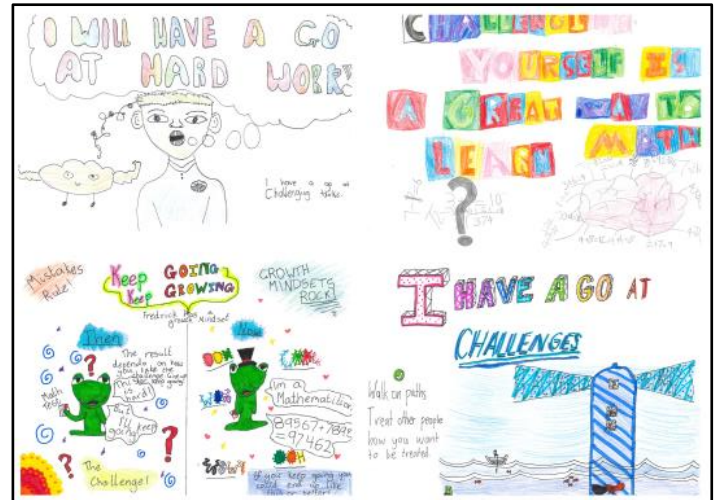 I WILL HAVE A GO
AT HARD WORK
I have a go at
Challenging tasks.
CHALLENGING
YOURSELF IS
A GREAT WAY TO
LEARN MATH
?
Mistakes
Rule!
Keep GOING
Keep GROWING
GROWTH
MINDSETS
ROCK!
Fredrick has a
growth Mindset
Then
?
The result
depends on how
you take the
Math
test
This is
hard!
But
I'll keep
going!
?
?
The
Challenge!
Now
OOH
I'm a
Mathematician
89567+7895
=97462
OOH
WOW!
If you keep going you
could end up like
I HAVE A GO AT
CHALLENGES
Walk on paths
Treat other people
how you want
to be treated.